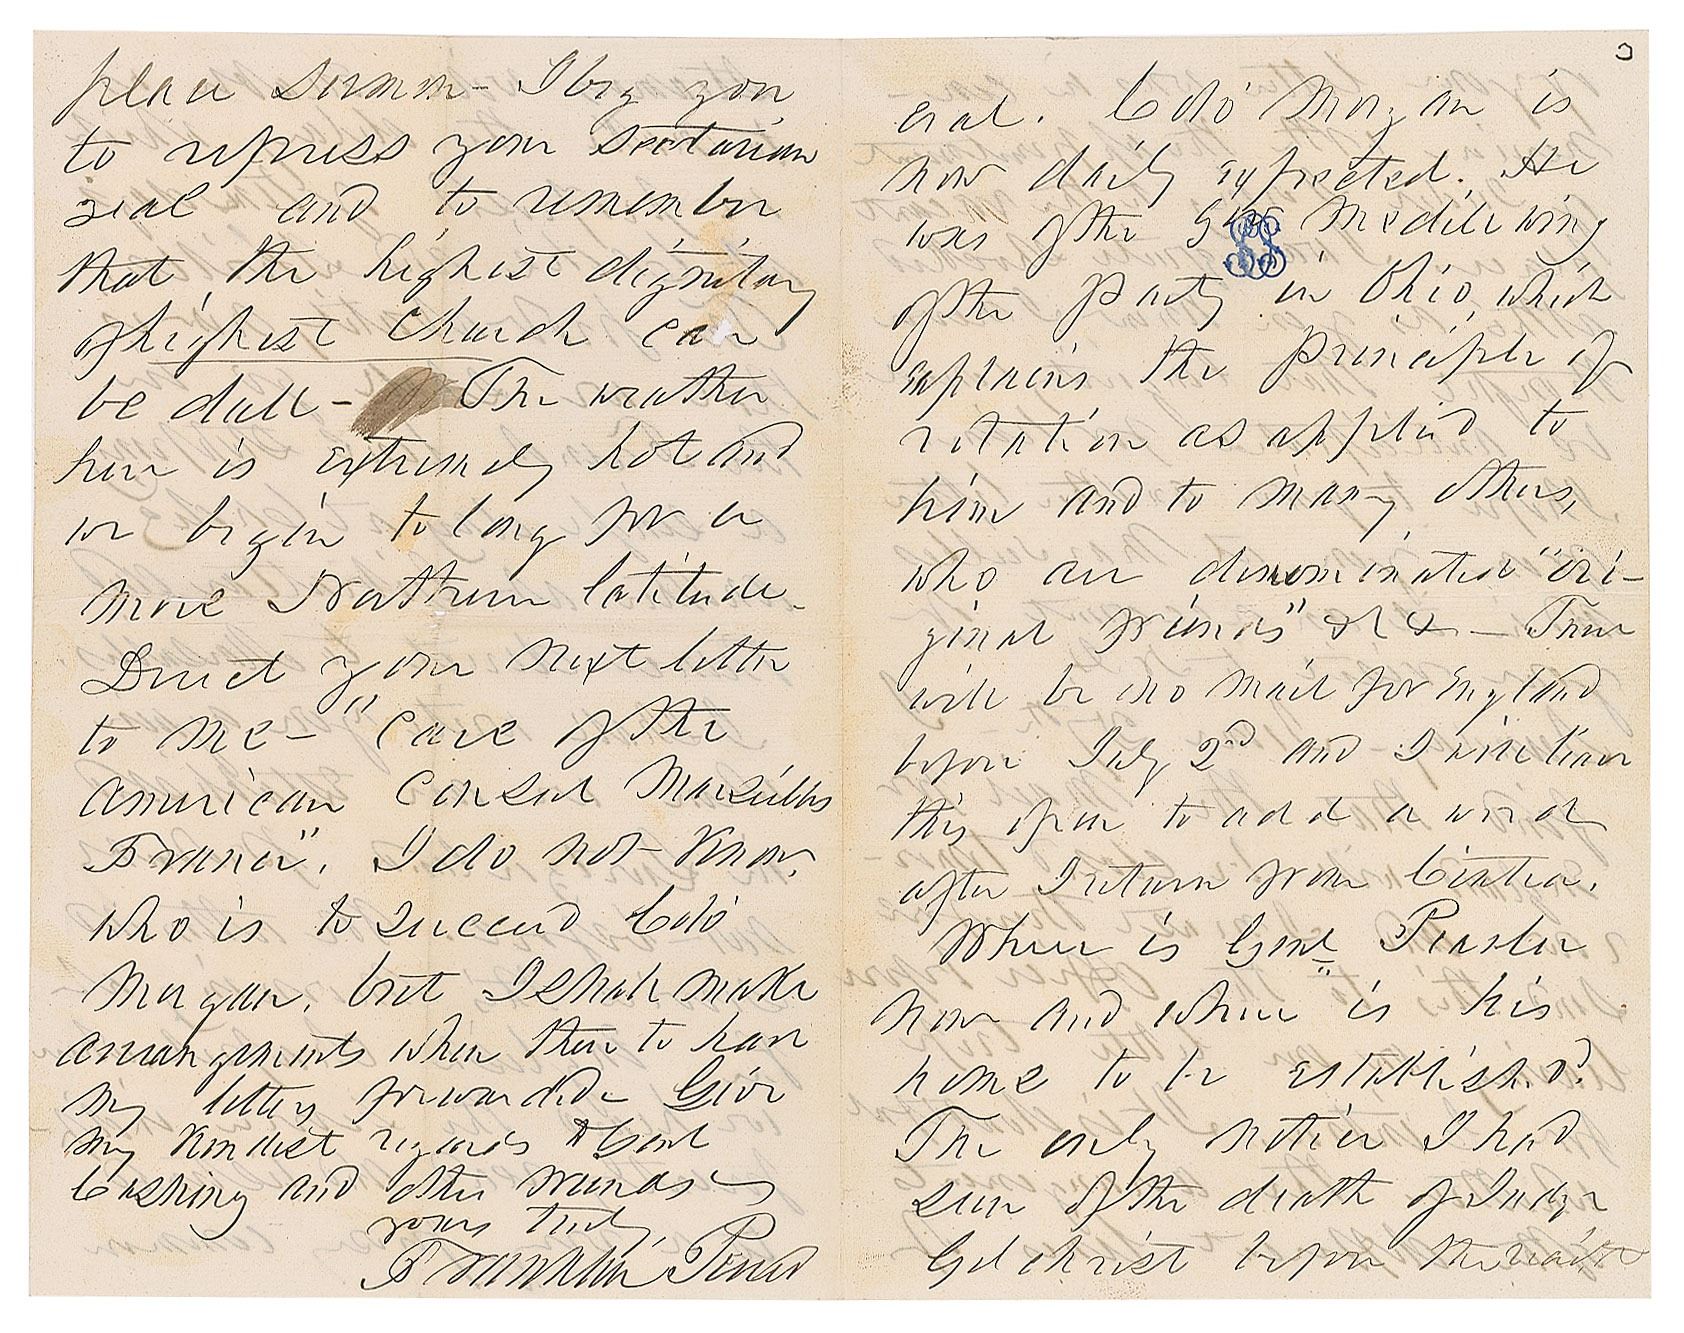 place sermon - I beg you
to repress your sectarian
zeal and to remember
that the highest dignitary
of highest church can
be dull - The weather
here is extremely hot and
we begin to long for a
more Northern latitude.
Direct your next letter
to me - "care of the
American Consul Marseilles
France". I do not know,
who is to succeed Colo
Morgan, but I shall make
arrangements when there to have
my letters forwarded. Give
my kindest regards to Genl
Cushing and other friends
yours truly
Franklin Pierce
3
eral. Colo Morgan is
now daily expected. He
was of the Medill wing
of the party in Ohio, which
explains the principle of
rotation as applied to
him and to many others,
who are denominated "ori-
ginal friends" &c &c - There
will be no mail for England
before July 2nd and I will leave
this open to add a word
after I return from Cintra.
Where is Genl Peaslee
now and where is his
home to be established?
The only notice I had
seen of the death of Judge
Gilchrist before the